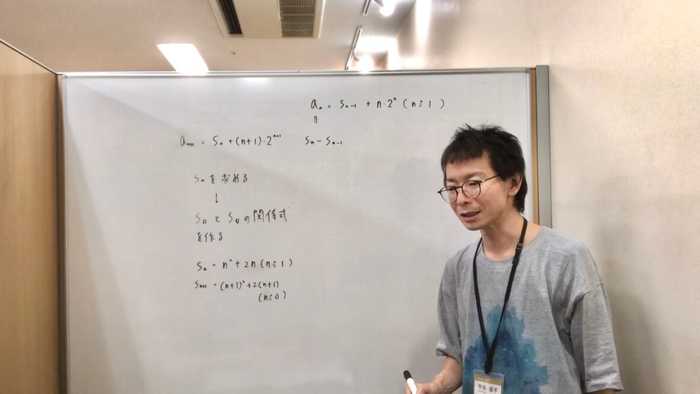 aₙ = Sₙ₋₁ + n·2ⁿ (n≧1)
||
aₙ₊₁ = Sₙ + (n+1)·2ⁿ⁺¹
Sₙ − Sₙ₋₁
Sₙを求める
↓
S□とS□の関係式
を作る
Sₙ = n² + 2n (n≧1)
Sₙ₊₁ = (n+1)² + 2(n+1)
(n≧0)